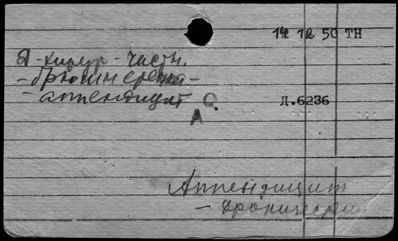 14 12 50 ТН
Я - хирур - часть.
- брюшн
- аппендицит
С.
А
Д.6236
Аппендицит
- хронический